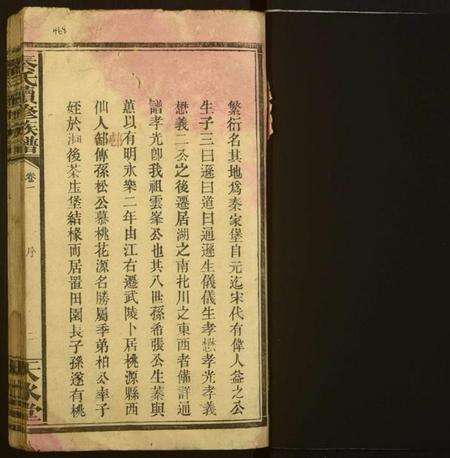 繁衍名其地爲秦家堡自元迄宋代有偉人益之公
生子三曰遜曰道曰逼遜生儀儀生孝懋孝光孝義
懋義二公之後遷居湖之南北川之東西者備詳通
譜孝光卽我祖雲峯公也其八世孫希張公生蓁與
蕙以有明永樂二年由江右遷武陵卜居桃源縣西
仙人鄒傳孫松公慕桃花源名勝屬季弟柏公率子
姪於湘後茶庄堡結椽而居置田園長子孫遂有桃
秦氏續修族譜
卷一
序
468